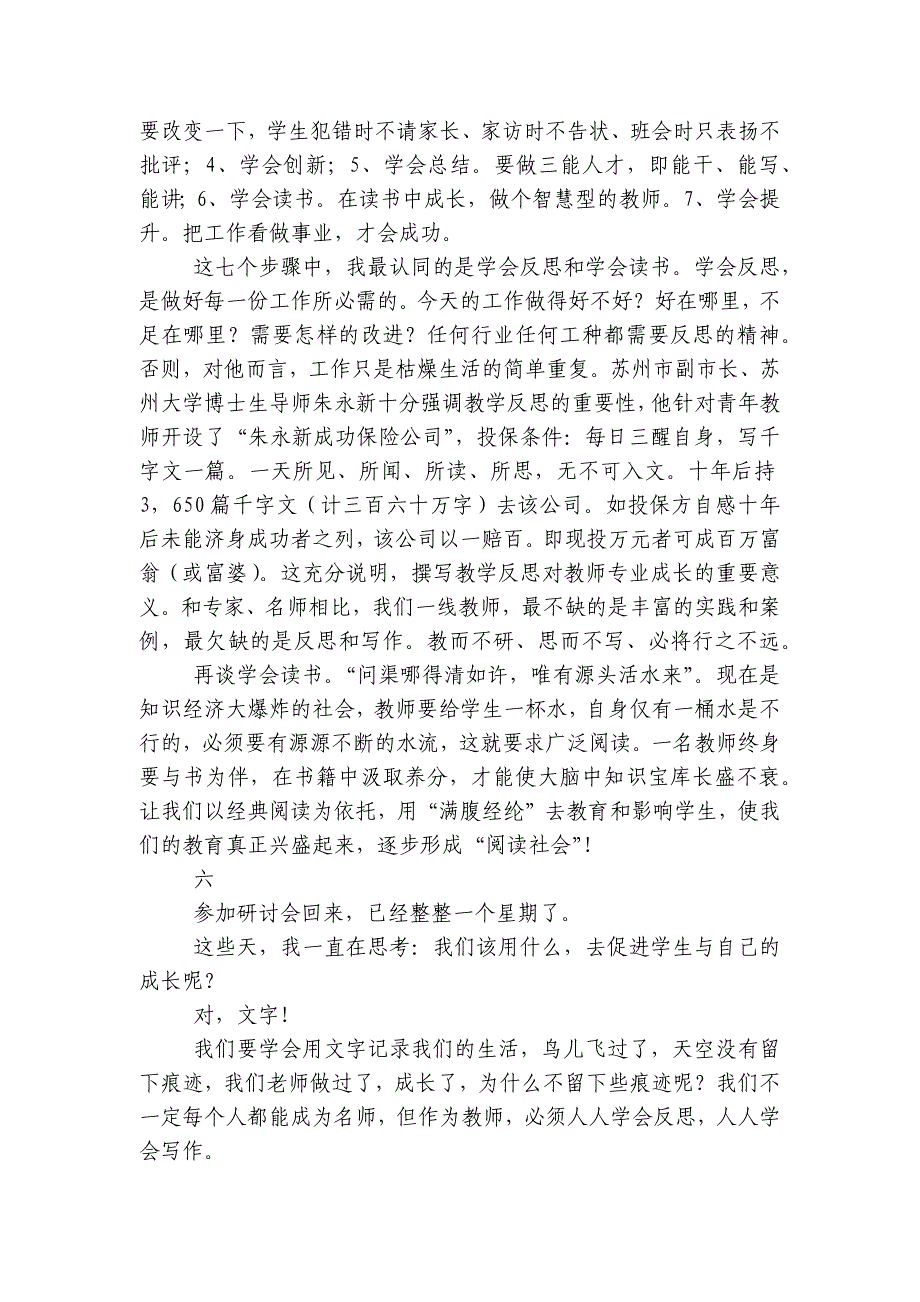 要改变一下，学生犯错时不请家长、家访时不告状、班会时只表扬不
批评；4、学会创新；5、学会总结。要做三能人才，即能干、能写、
能讲；6、学会读书。在读书中成长，做个智慧型的教师。7、学会提
升。把工作看做事业，才会成功。
这七个步骤中，我最认同的是学会反思和学会读书。学会反思，
是做好每一份工作所必需的。今天的工作做得好不好？好在哪里，不
足在哪里？需要怎样的改进？任何行业任何工种都需要反思的精神。
否则，对他而言，工作只是枯燥生活的简单重复。苏州市副市长、苏
州大学博士生导师朱永新十分强调教学反思的重要性，他针对青年教
师开设了“朱永新成功保险公司”，投保条件：每日三醒自身，写千
字文一篇。一天所见、所闻、所读、所思，无不可入文。十年后持
3，650篇千字文（计三百六十万字）去该公司。如投保方自感十年
后未能济身成功者之列，该公司以一赔百。即现投万元者可成百万富
翁（或富婆）。这充分说明，撰写教学反思对教师专业成长的重要意
义。和专家、名师相比，我们一线教师，最不缺的是丰富的实践和案
例，最欠缺的是反思和写作。教而不研、思而不写、必将行之不远。
再谈学会读书。“问渠哪得清如许，唯有源头活水来”。现在是
知识经济大爆炸的社会，教师要给学生一杯水，自身仅有一桶水是不
行的，必须要有源源不断的水流，这就要求广泛阅读。一名教师终身
要与书为伴，在书籍中汲取养分，才能使大脑中知识宝库长盛不衰。
让我们以经典阅读为依托，用“满腹经纶”去教育和影响学生，使我
们的教育真正兴盛起来，逐步形成“阅读社会”！
六
参加研讨会回来，已经整整一个星期了。
这些天，我一直在思考：我们该用什么，去促进学生与自己的
成长呢？
对，文字！
我们要学会用文字记录我们的生活，鸟儿飞过了，天空没有留
下痕迹，我们老师做过了，成长了，为什么不留下些痕迹呢？我们不
一定每个人都能成为名师，但作为教师，必须人人学会反思，人人学
会写作。